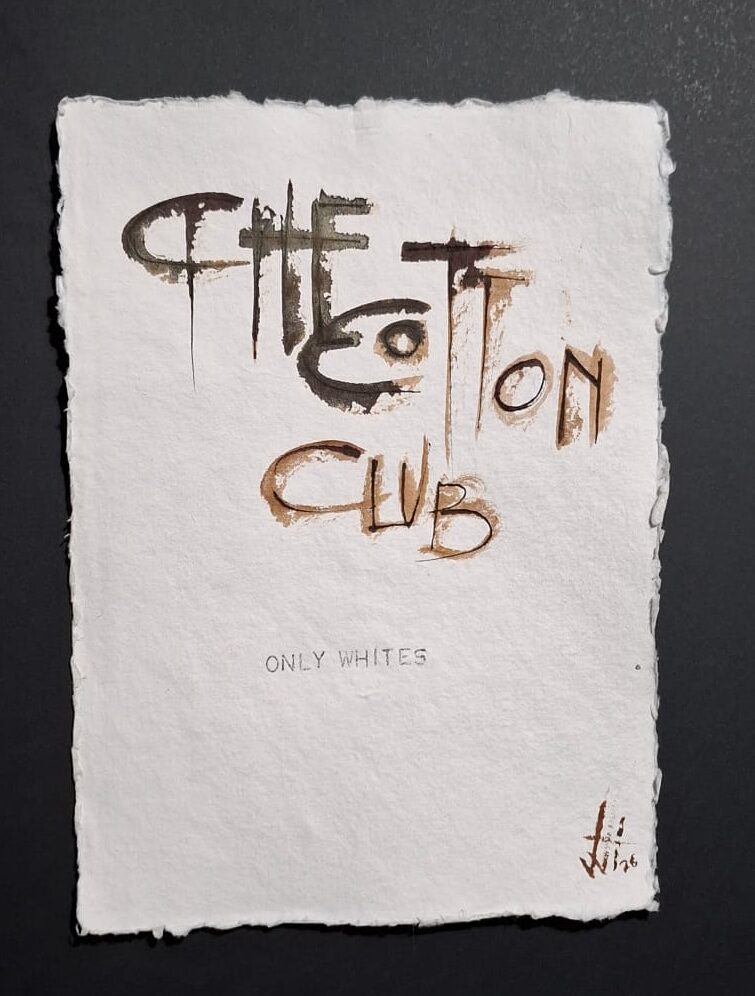 THE
COTTON
CLUB
ONLY WHITES